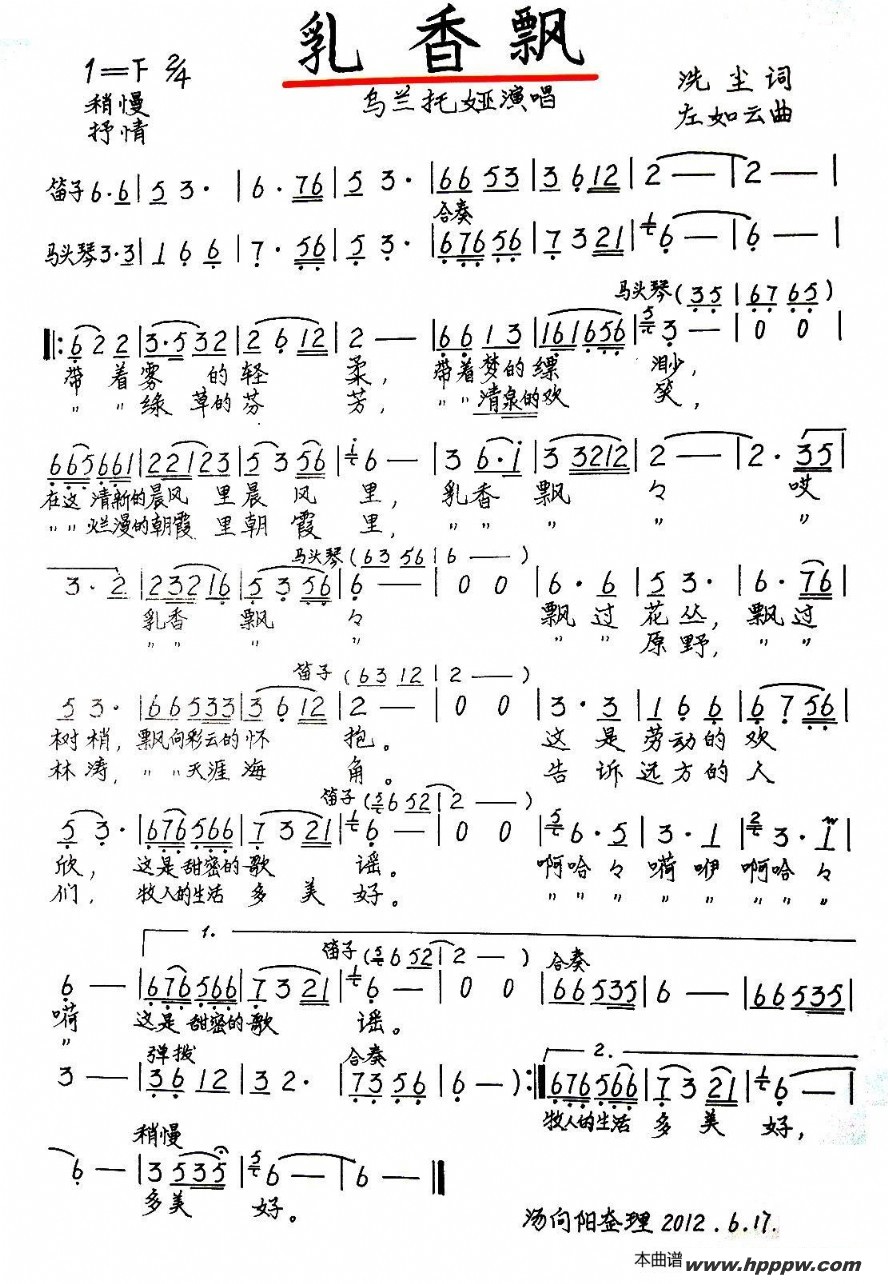 乳香飘
1=F 2/4
稍慢
抒情
乌兰托娅演唱
洗尘词
左如云曲
笛子 6·6 | 5 3· | 6·76 | 5 3· | 66 53 | 3 6 12 | 2 — | 2 — |
合奏
马头琴 3·3 | 1 6 6 | 7·56 | 5 3· | 676 56 | 7 3 21 | 6 — | 6 — |
马头琴 (35 | 67 65)
|: 6 2 2 | 3·5 32 | 2 6 12 | 2 — | 6 6 1 3 | 161656 | 3 — | 0 0 |
带着雾的轻柔，带着梦的缥渺，
〃〃绿草的芬芳，〃〃清泉的欢笑，
665661 | 22123 | 5 3 56 | 6 — | 3 6·i | 3 3212 | 2 — | 2·35 |
在这清新的晨风里晨风里，乳香飘々哎
〃〃烂漫的朝霞里朝霞里，〃〃〃〃〃
马头琴 (63 56 | 6 — )
3·2 | 23216 | 5 3 56 | 6 — | 0 0 | 6·6 | 5 3· | 6·76 |
乳香飘々飘过花丛，飘过
〃〃〃〃〃〃原野，〃〃
笛子 (63 12 | 2 — )
5 3· | 66533 | 3 6 12 | 2 — | 0 0 | 3·3 | 1 6 6 | 6 7 56 |
树梢，飘向彩云的怀抱。这是劳动的欢
林涛，〃〃天涯海角。告诉远方的人
笛子 (5 6 52 | 2 — )
5 3· | 676566 | 7 3 21 | 6 — | 0 0 | 6·5 | 3·1 | 3·1 |
欣，这是甜密的歌谣。啊哈々嗬咿啊哈々
们，牧人的生活多美好。〃〃〃〃〃〃〃〃
1.
笛子 (5 6 52 | 2 — ) 合奏
6 — | 676566 | 7 3 21 | 6 — | 0 0 | 66535 | 6 — | 66535 |
嗬这是甜密的歌谣。
〃
弹拨 合奏
2.
3 — | 36 12 | 3 2· | 73 56 | 6 — ) :| 676566 | 7 3 21 | 6 — |
牧人的生活多美好，
稍慢
6 — | 3 535 | 6 — | 6 — ‖
多美好。
汤向阳査理2012.6.17.
本曲谱 www.hpppw.com